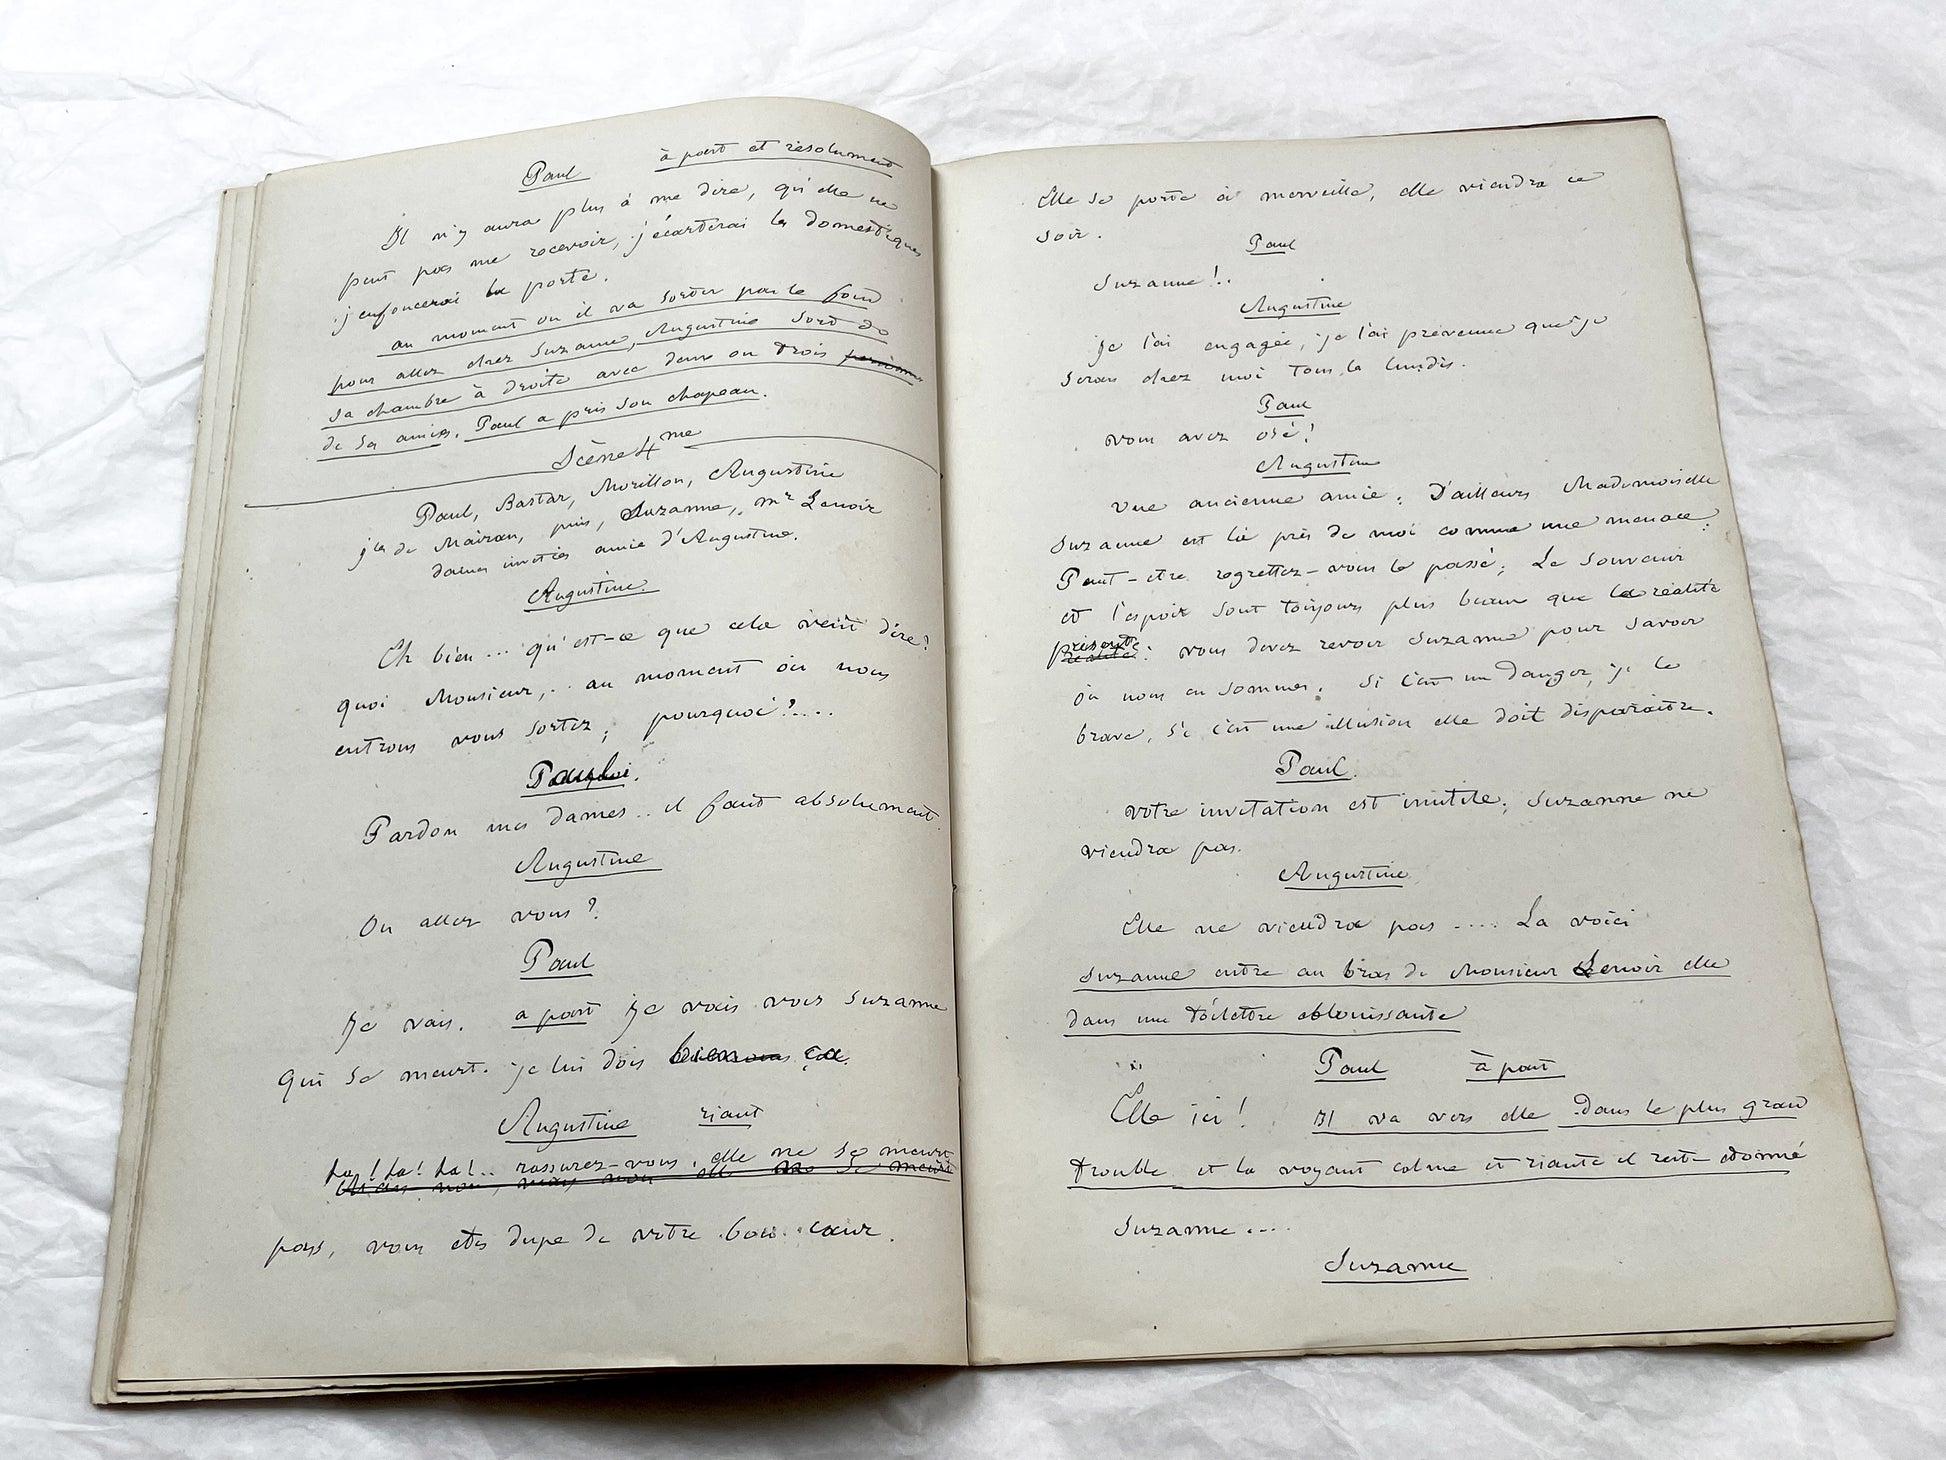 Paul à part et résolument
Il n'y aura plus à me dire, qu'elle ne
peut pas me recevoir, j'écarterai les domestiques
j'enfoncerai la porte.
au moment où il va sortir par le fond
pour aller chez Suzanne, Augustine sort de
sa chambre à droite avec deux ou trois
de ses amies. Paul a pris son chapeau.
Scène 4me
Paul, Bastar, Morillon, Augustine
de Mairan, puis, Suzanne, mr Lenoir
dames invitées amie d'Augustine.
Augustine.
Eh bien... qu'est-ce que cela veut dire?
quoi Monsieur,.. au moment où nous
entrons vous sortez; pourquoi?....
Paul
Pardon mes dames.. il faut absolument.
Augustine
Ou allez vous?
Paul
Je vais. a part Je vais voir Suzanne
qui se meurt. je lui dois bien ça.
Augustine riant
ha! ha! ha!.. rassurez-vous, elle ne se meurt
pas, vous etes dupe de votre bon cœur.
Elle se porte à merveille, elle viendra ce
soir.
Paul
Suzanne!..
Augustine
je l'ai engagée, je l'ai prévenue que je
serais chez moi tous les lundis.
Paul
vous avez osé!
Augustine
Une ancienne amie. D'ailleurs Mademoiselle
Suzanne est là près de moi comme une menace.
Peut-etre regrettez-vous le passé; Le souvenir
et l'espoir sont toujours plus beaux que la réalité
présente: vous devez revoir Suzanne pour savoir
où nous en sommes. Si c'est un danger, je le
brave, si c'est une illusion elle doit disparaitre.
Paul.
votre invitation est inutile; Suzanne ne
viendra pas.
Augustine
Elle ne viendra pas .... La voici
Suzanne entre au bras de Monsieur Lenoir elle
dans une toilettre eblouissante
Paul à part
Elle ici! Il va vers elle dans le plus grand
trouble et la voyant calme et riante il reste étonné
Suzanne....
Suzanne